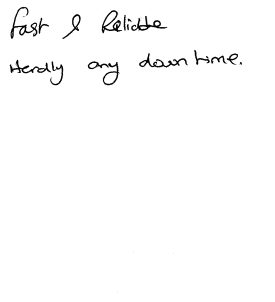 Fast & Reliable
Hardly any downtime.